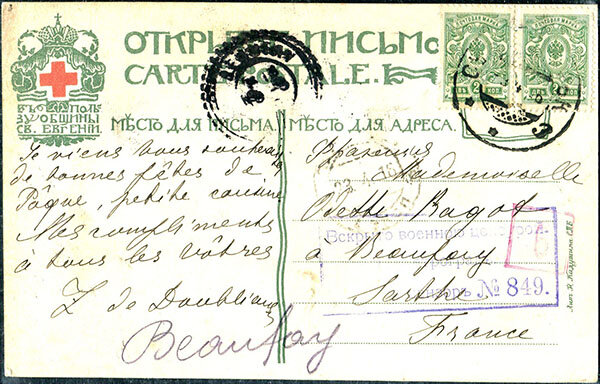 ОТКРЫТОЕ ПИСЬМО
CARTE POSTALE.
ВЪ ПОЛЬ
ЗУ ОБЩИНЫ
СВ. ЕВГЕНІИ.
МѢСТО ДЛЯ ПИСЬМА.
Je viens vous souhaiter
de bonnes fêtes de
Pâque, petite cousine
Mes compliments
à tous les vôtres
Z de
МѢСТО ДЛЯ АДРЕСА.
Франція
Mademoiselle
Odette Bagot
à Beaufay
Sarthe
France
Beaufay
Вскрыто военной цензурой.
№ 849.